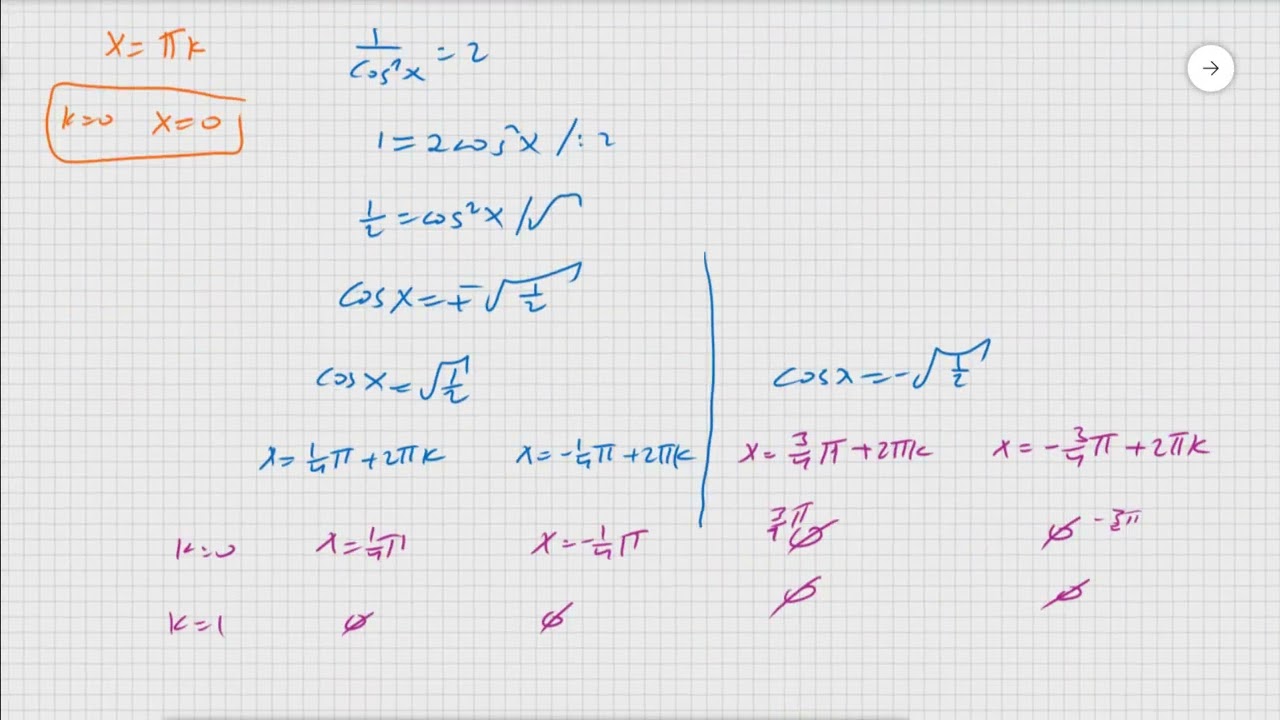 x = πk
k=0 x=0
1/cos²x = 2
1 = 2cos²x /:2
1/2 = cos²x /√
cosx = ∓√(1/2)
cosx = √(1/2)
cosx = -√(1/2)
x = 1/4π + 2πk x = -1/4π + 2πk
x = 3/4π + 2πk x = -3/4π + 2πk
k=0 x = 1/4π x = -1/4π 3/4π ∅ ∅ -3/2π
k=1 ∅ ∅ ∅ ∅